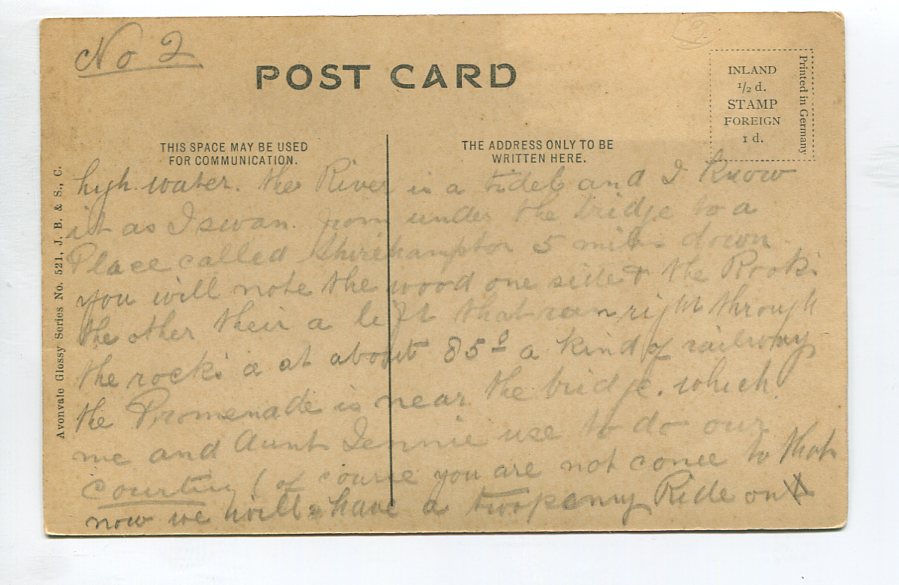 No 2
POST CARD
INLAND
1/2 d.
STAMP
FOREIGN
1 d.
Printed in Germany
THIS SPACE MAY BE USED
FOR COMMUNICATION.
THE ADDRESS ONLY TO BE
WRITTEN HERE.
Avonvale Glossy Series No. 521, J. B. & S., C.
high water. the River is a tidel and I know
it as I swan. from under the bridge to a
Place called Shirehampton 5 miles down.
you will note the wood one side & the Rocks
the other their a left that ran right through
the rocks a at about 85° a kind of railway
the Promenade is near the bridge. which
me and Aunt Jennie use to do our
courting (of course you are not come to that
now we will have a twopenny Ride on